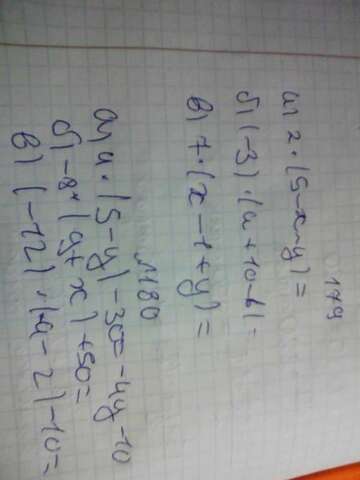 179
а) 2·(5-x-y)=
б) (-3)·(a+10-b)=
в) 7·(x-1+y)=
№180
а) 4·(5-y)-30=-4y-10
б) -8·(y+x)+50=
в) (-12)·(a-2)-10=